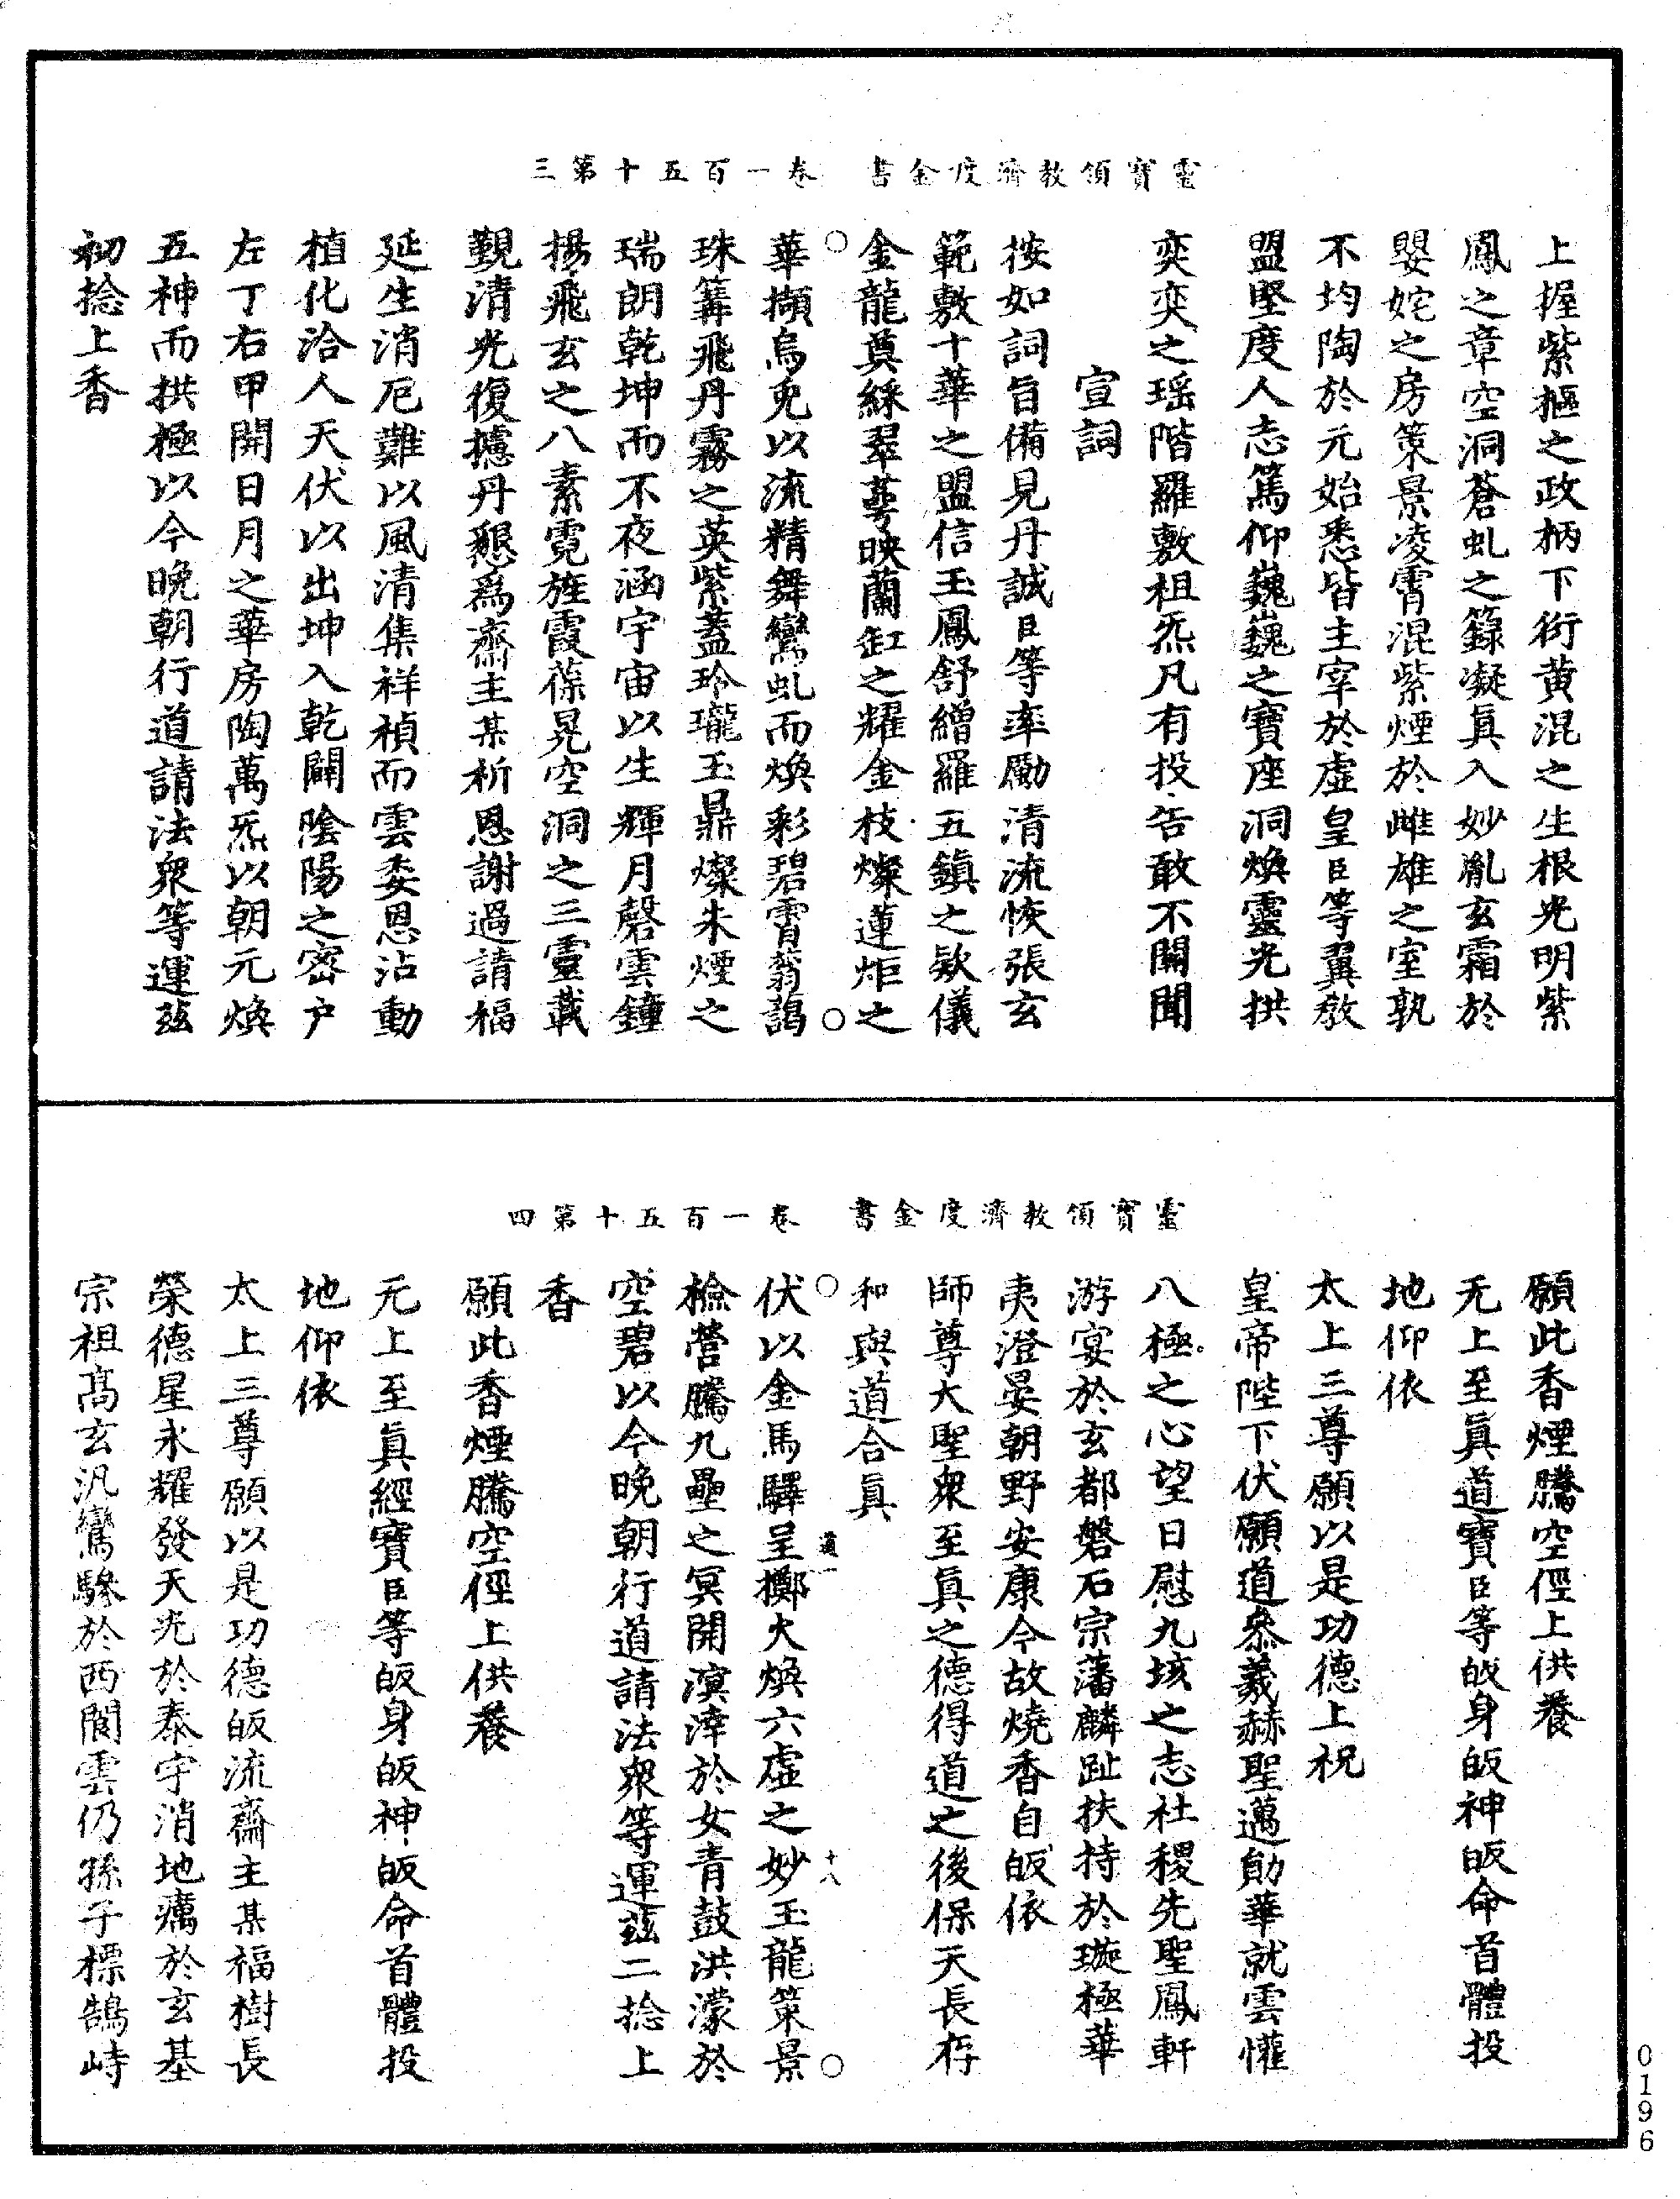 靈寶領教濟度金書 卷一百五十第三
上握紫樞之政柄下衍黄混之生根光明紫
鳳之章空洞蒼虬之籙凝眞入妙胤玄霜於
嬰姹之房策景凌霄混紫煙於雌雄之室孰
不均陶於元始悉皆主宰於虚皇臣等翼教
盟堅度人志篤仰巍巍之寶座洞煥靈光拱
奕奕之瑶階羅敷祖炁凡有投告敢不關聞
宣詞
按如詞旨備見丹誠臣等率勵清流恢張玄
範敷十華之盟信玉鳳舒繒羅五鎮之欵儀
金龍奠綵翠蕚映蘭缸之耀金枝燦蓮炬之
華擷烏兎以流精舞鸞虬而煥彩碧霄蓊藹
珠篝飛丹霧之英紫蓋玲瓏玉鼎燦朱煙之
瑞朗乾坤而不夜涵宇宙以生輝月磬雲鐘
揚飛玄之八素霓旌霞葆晃空洞之三靈載
覲清光復攄丹懇爲齋主某祈恩謝過請福
延生消厄難以風清集祥禎而雲委恩沾動
植化洽人天伏以出坤入乾闢陰陽之密户
左丁右甲開日月之華房陶萬炁以朝元煥
五神而拱極以今晚朝行道請法衆等運兹
初捻上香
靈寶領教濟度金書 卷一百五十第四
願此香煙騰空徑上供養
无上至眞道寶臣等皈身皈神皈命首體投
地仰依
太上三尊願以是功德上祝
皇帝陛下伏願道叅羲赫聖邁勛華就雲懽
八極之心望日慰九垓之志社稷先聖鳳軒
游宴於玄都磐石宗藩麟趾扶持於璇極華
夷澄晏朝野安康今故燒香自皈依
師尊大聖衆至眞之德得道之後保天長存
和與道合眞
伏以金馬驛呈擲火煥六虚之妙玉龍策景
檢營騰九壘之冥開溟涬於女青鼓洪濛於
空碧以今晚朝行道請法衆等運兹二捻上
香
願此香煙騰空徑上供養
元上至眞經寶臣等皈身皈神皈命首體投
地仰依
太上三尊願以是功德皈流齋主某福樹長
榮德星永耀發天光於泰宇消地癘於玄基
宗祖髙玄汎鸞驂於西閬雲仍孫子標鵠峙
十八
0196